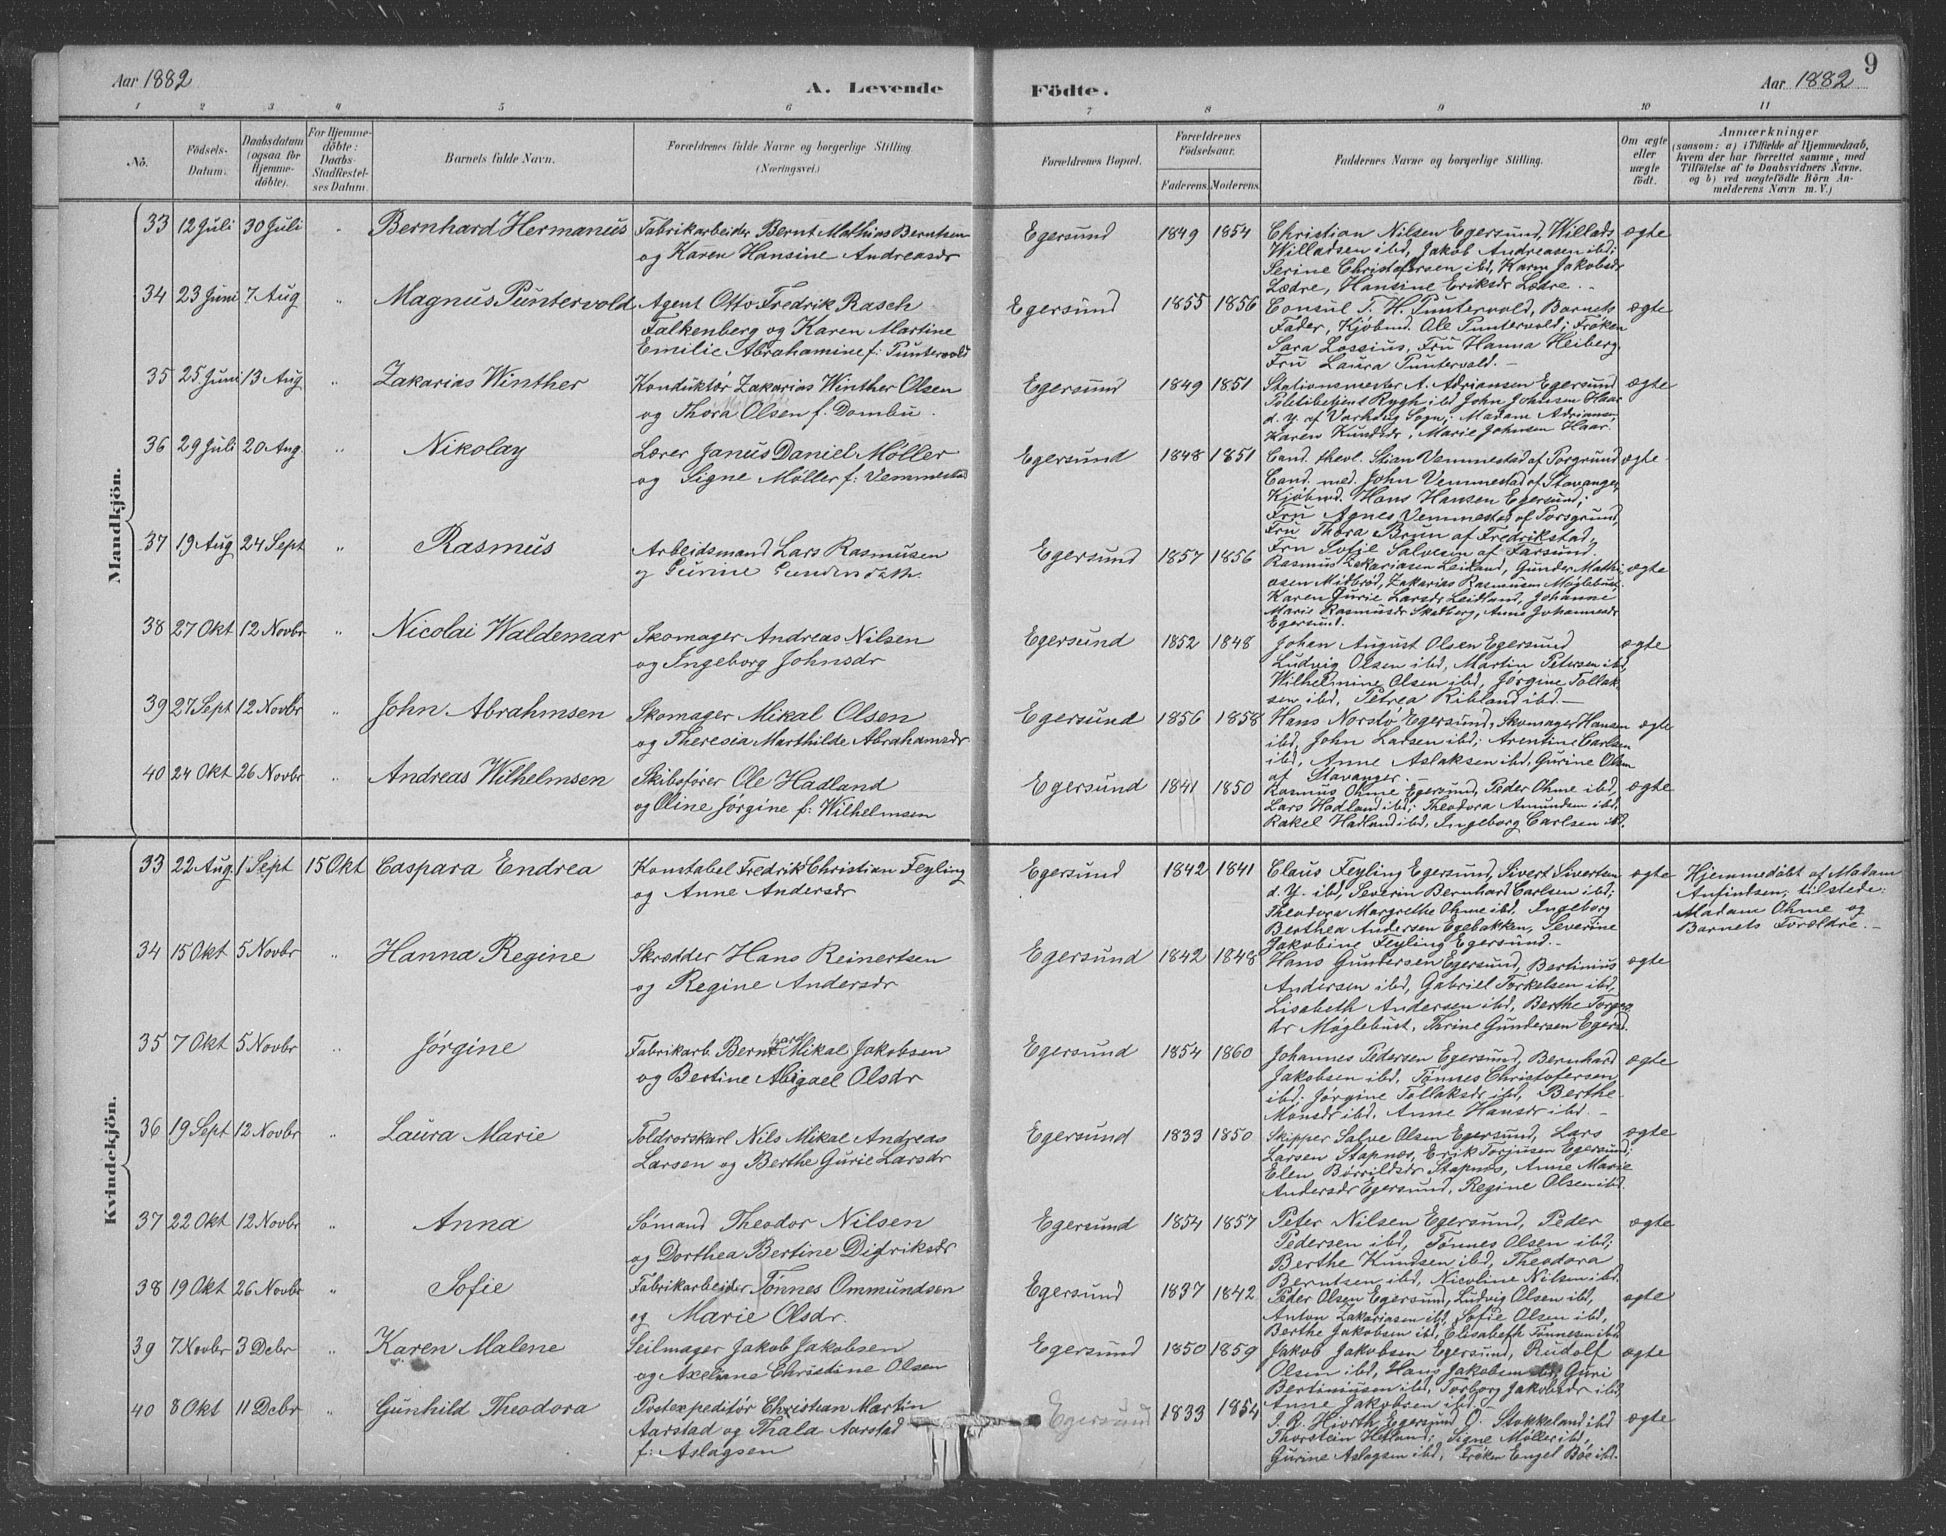 Aar 1882
A. Levende
Födte.
Aar 1882
9
1 2 3 4 5 6 7 8 9 10 11
No.
Födsels-
Datum.
Daabsdatum
(ogsaa for
Hjemme-
döbte).
For Hjemme-
döbte:
Daabs-
Stadfæstel-
ses Datum.
Barnets fulde Navn.
Forældrenes fulde Navne og borgerlige Stilling
(Næringsvei.)
Forældrenes Bopæl.
Forældrenes
Födselsaar.
Faderens. Moderens.
Faddernes Navne og borgerlige Stilling.
Om ægte
eller
uægte
födt.
Anmærkninger
(saasom: a) i Tilfælde af Hjemmedaab,
hvem der har forrettet samme, med
Tilföielse af to Daabsvidners Navne.
og b) ved uægtefödte Börn An-
melderens Navn m. V.)
Mandkjön.
33 12 Juli 30 Juli " Bernhard Hermanus Fabrikarbeider Bernt Mathias Berntsen
og Karen Hansine Andreasdr
Egersund 1849 1854 Christian Nilsen Egersund, Willads ægte
Willadsen ibd, Jakob Andreasen ibd;
Serine Christofersen ibd, Karen Jakobsdr
Lædre, Hansine Eriksdr Lædre. -
34 23 Juni 7 Aug " Magnus Puntervold Agent Otto Fredrik Rasch
Falkenberg og Karen Martine
Emilie Abrahamine f: Puntervold
Egersund 1855 1856 Consul T. H. Puntervold, Barnets ægte
Fader, Kjøbmd. Ole Puntervold; Frøken
Sara Lossius, Fru Hanna Heiberg
Fru Laura Puntervold. -
35 25 Juni 13 Aug " Zakarias Winther Konduktør Zakarias Winther Olsen
og Thora Olsen f: Dombu.
Egersund 1849 1851 Stationsmester A. Adriansen Egersund ægte
Politibetjent Rygh ibd John Johnsen Haar
d. y. af Varhaug Sogn; Madam Adriansen,
Karen Knudsdr, Marie Johnsen Haar.
36 29 Juli 20 Aug " Nikolay Lærer Janus Daniel Møller
og Signe Møller f: Vemmestad
Egersund 1848 1851 Cand. theol. Stian Vemmestad af Porsgrund ægte
Cand. med. John Vemmestad af Stavanger,
Kjøbmd. Hans Hansen Egersund;
Fru Agnes Vemmestad af Porsgrund,
Fru Thora Brun af Fredrikstad,
Fru Sofie Salvesen af Farsund.
37 19 Aug 24 Sept " Rasmus Arbeidsmand Lars Rasmusen
og Gurine
Egersund 1857 1856 Rasmus Zakariasen Leidland, Gunder Mathi- ægte
asen Midbrød, Zakarias Rasmusen Møglebust;
Karen Gurie Larsdr Leidland, Johanne
Marie Rasmusdr Skadberg, Anne Johannesdr
Egersund.
38 27 Okt 12 Novbr " Nicolai Waldemar Skomager Andreas Nilsen
og Ingeborg Johnsdr
Egersund 1852 1848 Johan August Olsen Egersund ægte
Ludvig Olsen ibd, Martin Petersen ibd,
Wilhelmine Olsen ibd, Jørgine Tollak-
sen ibd, Petrea Ribland ibd. -
39 27 Sept 12 Novbr " John Abrahmsen Skomager Mikal Olsen
og Theresia Marthilde Abrahamsdr
Egersund 1856 1858 Hans Norslø Egersund, Skomager Hansen ægte
ibd, John Larsen ibd; Arentine Carlsen
ibd, Anne Aslaksen ibd, Gurine Olsen
af Stavanger.
40 24 Okt 26 Novbr " Andreas Wilhelmsen Skibsfører Ole Hadland
og Oline Jørgine f: Wilhelmsen
Egersund 1841 1850 Rasmus Ohme Egersund, Peder Ohme ibd, ægte
Lars Hadland ibd; Theodora Amundsen ibd,
Rakel Hadland ibd, Ingeborg Carlsen ibd.
Kvindekjön.
33 22 Aug. 1 Sept 15 Okt Caspara Endrea Konstabel Fredrik Christian Feyling
og Anne Andersdr
Egersund 1842 1841 Claus Feyling Egersund, Sivert Sivertsen ægte
d. y. ibd, Severin Bernhard Carlsen ibd;
Theodora Margrethe Ohme ibd, Ingeborg
Berthea Andersen Egebakken, Severine
Jakobine Feyling Egersund. -
Hjemmedøbt af Madam
Anfindsen; tilstede:
Madam Ohme og
Barnets Forældre. -
34 15 Okt 5 Novbr " Hanna Regine Skrædder Hans Reinertsen
og Regine Andersdr
Egersund 1842 1848 Hans Gundersen Egersund, Bertinius ægte
Andersen ibd, Gabriel Torkelsen ibd,
Lisabeth Andersen ibd, Berthe Torger
dr Møglebust, Tarine Gundersen Egersd.
35 7 Okt 5 Novbr " Jørgine Fabrikarb. Bernt Mikal Jakobsen
og Bertine Abigael Olsdr
Egersund 1854 1860 Johannes Pedersen Egersund, Bernhard ægte
Jakobsen ibd, Tønnes Christofersen
ibd; Jørgine Tollaksdr ibd, Berthe
Monsdr ibd, Anne Hansdr ibd. -
36 19 Sept 12 Novbr " Laura Marie Toldrorskarl Nils Mikal Andreas
Larsen og Berthe Gurie Larsdr
Egersund 1833 1850 Skipper Salve Olsen Egersund, Lars ægte
Larsen Stapnes, Erik Torjusen Egersund;
Elen Børrildsdr Stapnes, Anne Marie
Andersdr Egersund, Regine Olsen ibd.
37 22 Okt 12 Novbr " Anna Sømand Theodor Nilsen
og Dorthea Bertine Didriksdr
Egersund 1854 1857 Peter Nilsen Egersund, Peder ægte
Pedersen ibd, Tønnes Olsen ibd;
Berthe Knudsen ibd, Theodora
Berntsen ibd, Nicoline Nilsen ibd.
38 19 Okt 26 Novbr " Sofie Fabrikarbeider Tønnes Ommundsen
og Marie Olsdr.
Egersund 1837 1842 Peder Olsen Egersund, Ludvig Olsen ibd, ægte
Anton Zakariasen ibd, Sofie Olsen ibd,
Berthe Jakobsen ibd, Elisabeth Tønnesen ibd
39 7 Novbr 3 Debr " Karen Malene Seilmager Jakob Jakobsen
og Axeliane Christine Olsen
Egersund 1850 1859 Jakob Jakobsen Egersund, Rudolf ægte
Olsen ibd, Hans Jakobsen ibd; Guri
Bertiniusen ibd, Torborg Jakobsdr ibd,
Anne Jakobsen ibd. -
40 8 Okt 11 Debr " Gunhild Theodora Postexpeditør Christian Martin
Aarstad og Thala Aarstad
f: Aslagsen
Egersund 1833 1854 J. R. Hiorth Egersund, O. Stokkeland ibd ægte
Thorstein Hetland; Signe Møller ibd,
Gurine Aslagsen ibd, Frøken Engel Bøe ibd.